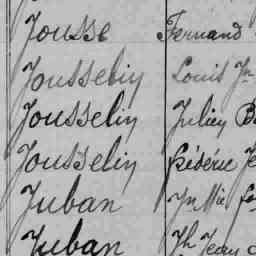 Jousse Fernand
Jousselin Louis Jn
Jousselin Julien
Jousselin Frédéric
Juban
Juban Jh Jean